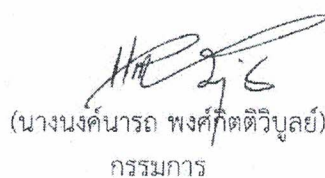 (นางนงค์นารถ พงศ์กิตติวิบูลย์)
กรรมการ